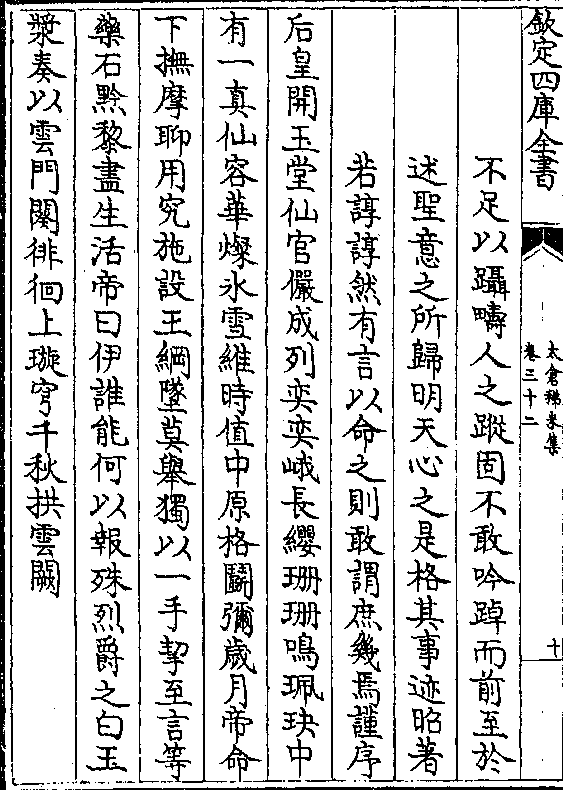 欽定四庫全書
太倉稊米集
卷三十二
十
不足以躡疇人之蹤固不敢吟踔而前至於
述聖意之所歸明天心之是格其事迹昭著
若諄諄然有言以命之則敢謂庶幾焉謹序
后皇開玉堂仙官儼成列奕奕峨長纓珊珊鳴珮玦中
有一真仙容華燦氷雪維時值中原格鬭彌歲月帝命
下撫摩聊用究施設王綱墜莫舉獨以一手挈至言等
藥石黔黎盡生活帝曰伊誰能何以報殊烈爵之白玉
漿奏以雲門闋徘徊上璇穹千秋拱雲闕